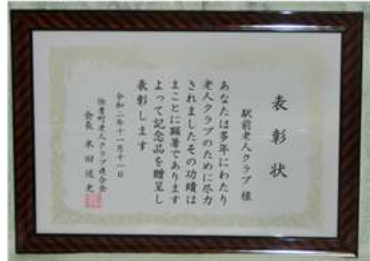 表彰状
駅前老人クラブ 様
あなたは多年にわたり
老人クラブのために尽力
されましたその功績は
まことに顕著であります
よって記念品を贈呈し
表彰します
令和二年十一月十一日
老人クラブ連合会
会長 米田